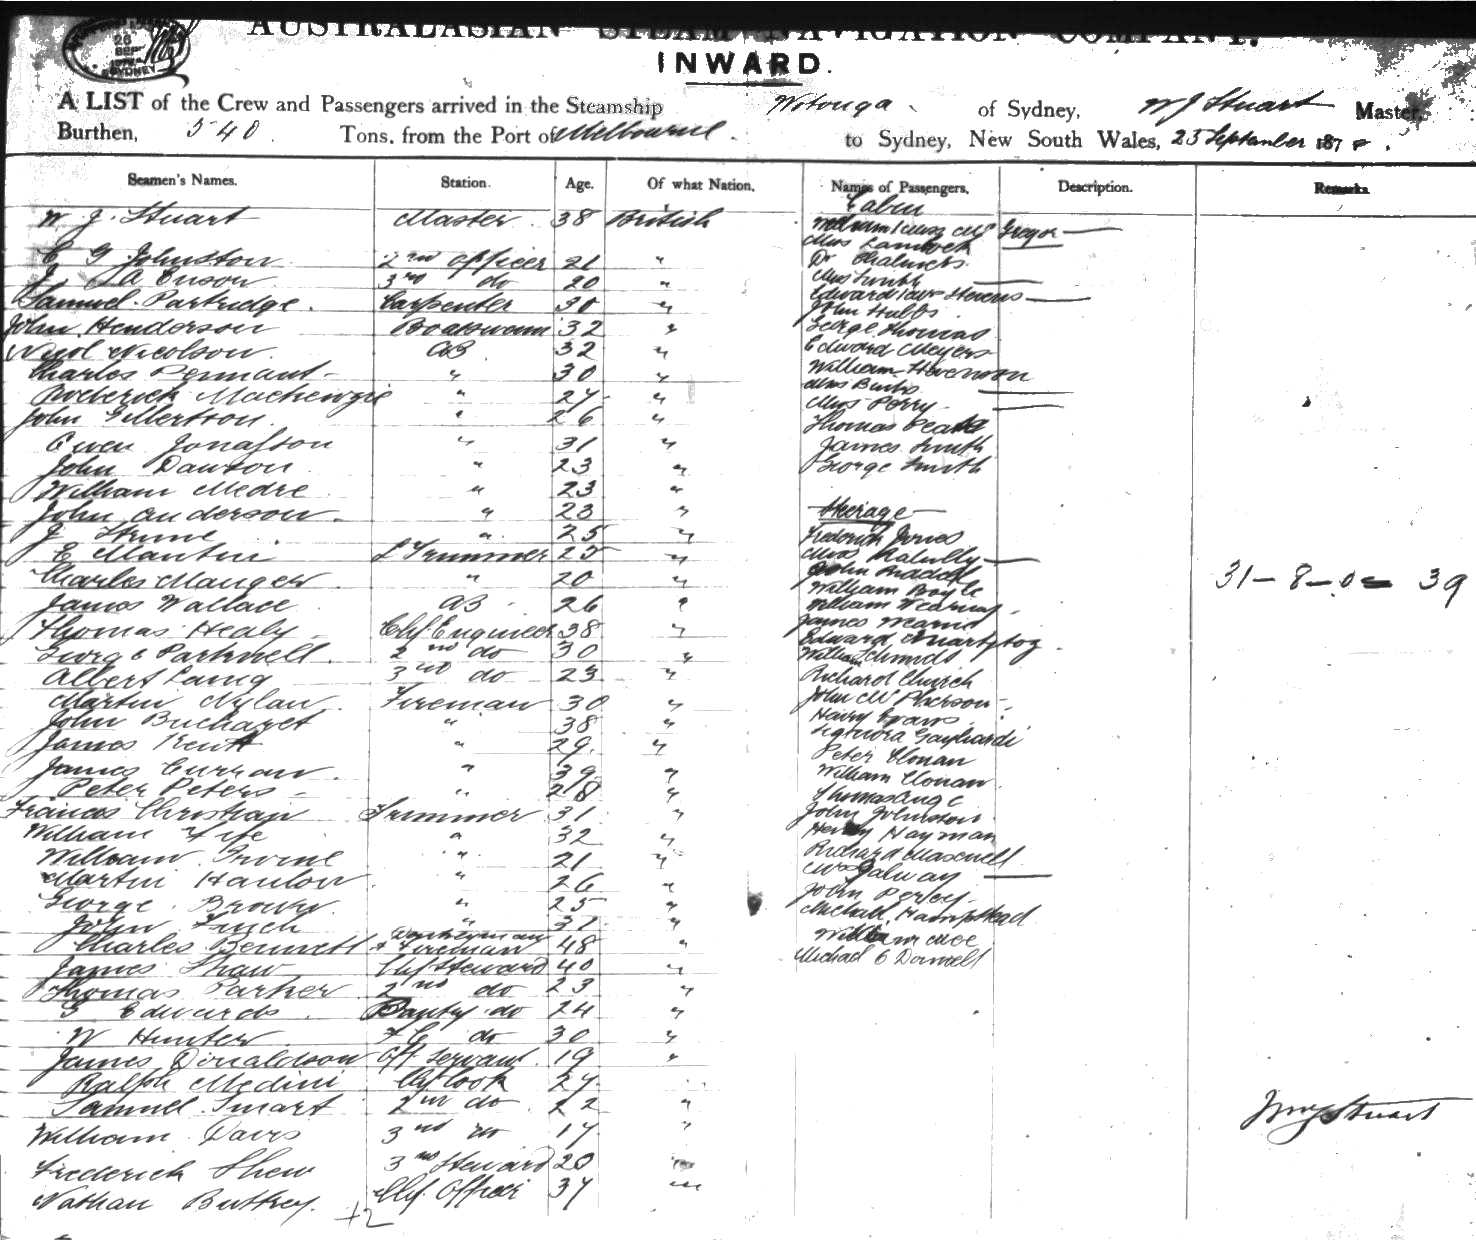 26
SEP
SYDNEY
AUSTRALASIAN STEAM NAVIGATION COMPANY.
INWARD.
A LIST of the Crew and Passengers arrived in the Steamship Wotonga of Sydney, W J Stuart Master,
Burthen, 540 Tons, from the Port of Melbourne. to Sydney, New South Wales, 25 September 187
Seamen's Names. Station. Age. Of what Nation. Names of Passengers. Description. Remarks
W J. Stuart Master 38 British
C G Johnston 2nd officer 21 "
J A 3rd do 20 "
Samuel Partridge. Carpenter 30 "
John Henderson Boatswain 32 "
Nicol Nicolson. AB 32 "
Charles " 30 "
Roderick Mackenzie " 27 "
John Gillertson. " 26 "
Owen Jonasson " 31 "
John Dawson " 23 "
William Medre " 23 "
John Anderson. " 23 "
J " 25 "
E Mantini L Trimmer 25 "
Charles Manger " 20 "
James Wallace AB 26 "
Thomas Healy Chf. Engineer 38 "
George Parknell. 2nd do 30 "
Albert Laing 3rd do 23 "
Martin Nylan Fireman 30 "
John " 38 "
James Kent " 29. "
James Curran. " 39 "
Peter Peters " 28 "
Francis Christian Trimmer 31 "
William Fife " 32 "
William Irvine " 21 "
Martin Hanlon " 26 "
George Brown " 25 "
John " 31 "
Charles Bennett Donkeyman & Fireman 48 "
James Shaw Chf Steward 40 "
Thomas Parker 2nd do 23 "
G Edwards Pantry do 24 "
W Hunter F C do 30 "
James Donaldson Off. Servant 19 "
Ralph Medini Chf Cook 27 "
Samuel Smart 2nd do 22 "
William Davis 3rd do 17 "
Frederick Shew 3rd Steward 20 "
Nathan Buttrey. Chf. Officer 37 "
+2
Cabin
William & Mrs McGregor
Mrs
Dr Chalmers
Mrs Smith
Edward & Mrs Stevens
John Hubbs
George Thomas
Edward Meyers
William Stevenson
Mrs
Mrs Perry
Thomas
James Smith
George Smith
Steerage
Frederick Jones
Mrs
John
William Boyle
William
James
Edward
William Schmidt
Richard Church
John McPherson
Harry Evans
Signora
Peter Clonan
William Clonan
Thomas
John Johnston
Henry Hayman
Richard Maxwell
Mrs Galway
John Perley
Michael Hampstead
William Moe
Michael
31 – 8 – 0 = 39
Wm J Stuart